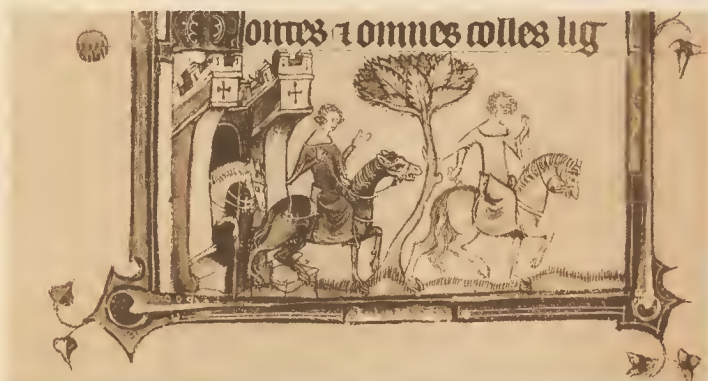 ontes ⁊ omnes colles lig